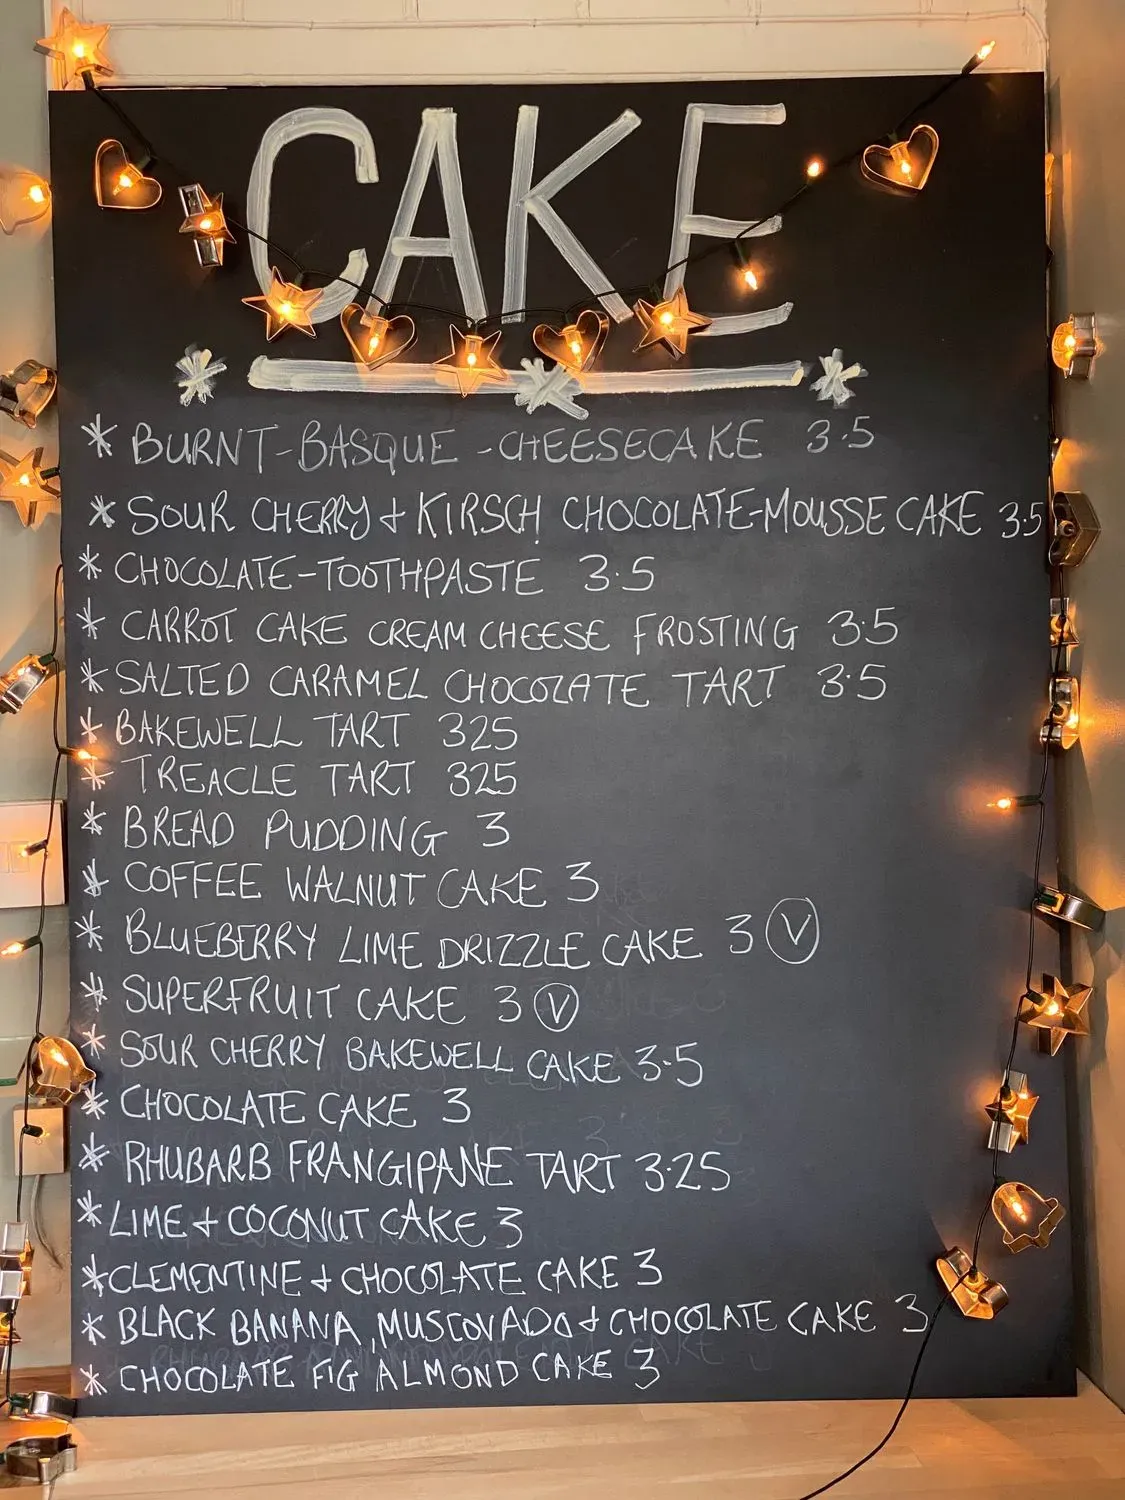 CAKE
* BURNT-BASQUE-CHEESECAKE 3.5
* SOUR CHERRY + KIRSCH CHOCOLATE-MOUSSE CAKE 3.5
* CHOCOLATE-TOOTHPASTE 3.5
* CARROT CAKE CREAM CHEESE FROSTING 3.5
* SALTED CARAMEL CHOCOLATE TART 3.5
* BAKEWELL TART 325
* TREACLE TART 325
* BREAD PUDDING 3
* COFFEE WALNUT CAKE 3
* BLUEBERRY LIME DRIZZLE CAKE 3 Ⓥ
* SUPERFRUIT CAKE 3 Ⓥ
* SOUR CHERRY BAKEWELL CAKE 3.5
* CHOCOLATE CAKE 3
* RHUBARB FRANGIPANE TART 3.25
* LIME + COCONUT CAKE 3
* CLEMENTINE + CHOCOLATE CAKE 3
* BLACK BANANA, MUSCOVADO + CHOCOLATE CAKE 3
* CHOCOLATE FIG ALMOND CAKE 3